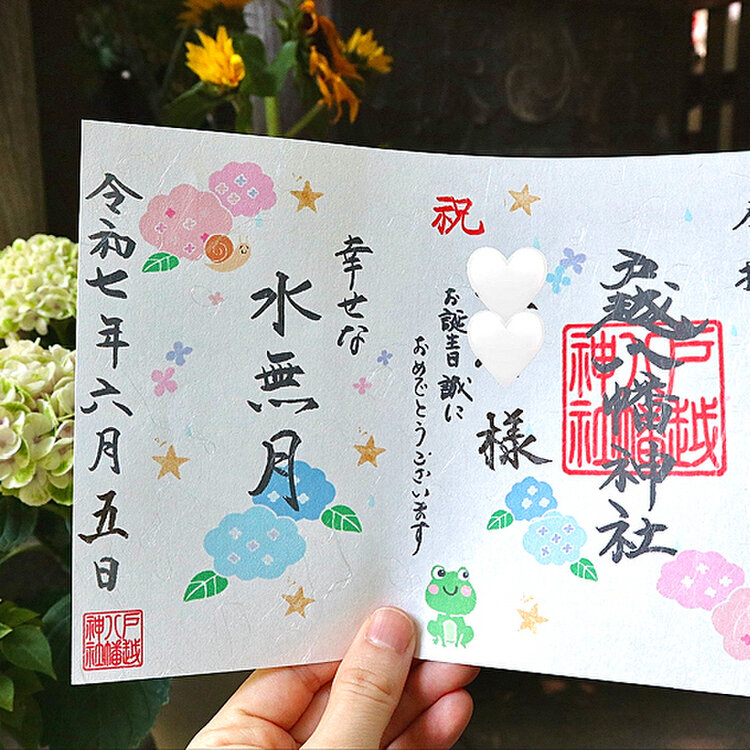 戸越八幡神社
戸越八幡神社
祝
様
お誕生日誠に
おめでとうございます
幸せな
水無月
令和七年六月五日
戸越八幡神社